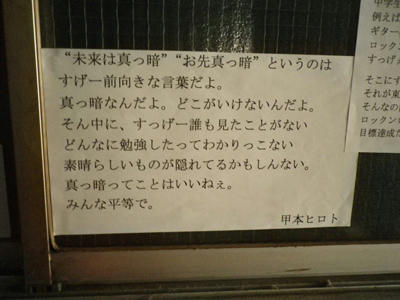 “未来は真っ暗”“お先真っ暗”というのは
すげー前向きな言葉だよ。
真っ暗なんだよ。どこがいけないんだよ。
そん中に、すっげー誰も見たことがない
どんなに勉強したってわかりっこない
素晴らしいものが隠れてるかもしんない。
真っ暗ってことはいいねぇ。
みんな平等で。
甲本ヒロト
中学生
例えば
ギター
ロックン
すっげぇ
そこにす
それが東
そんなの
ロックンロ
目標達成だ